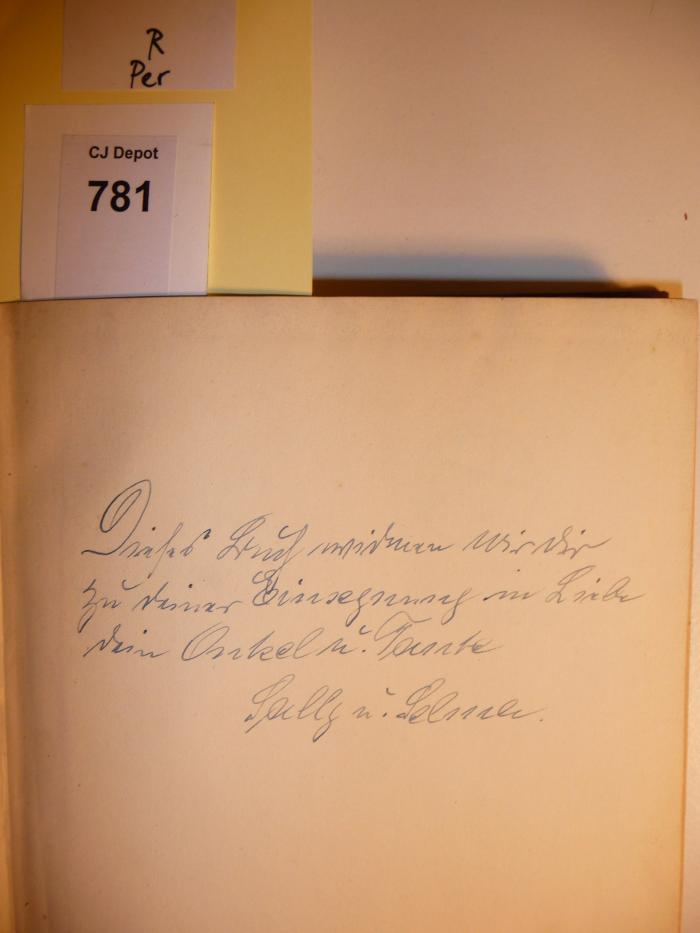 R
Per
CJ Depot
781
Dieses Buch widmen wir dir
zu deiner Einsegnung in Liebe
dein Onkel u. Tante
Sally u. Selma.